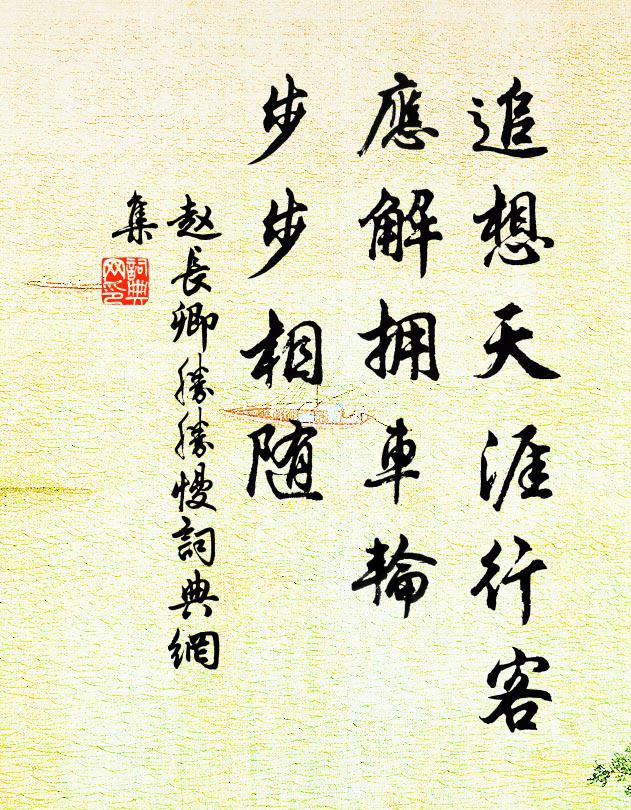 追想天涯行客
應解拥車輪
步步相随
赵長卿勝勝慢詞典網
集
詞典
网印